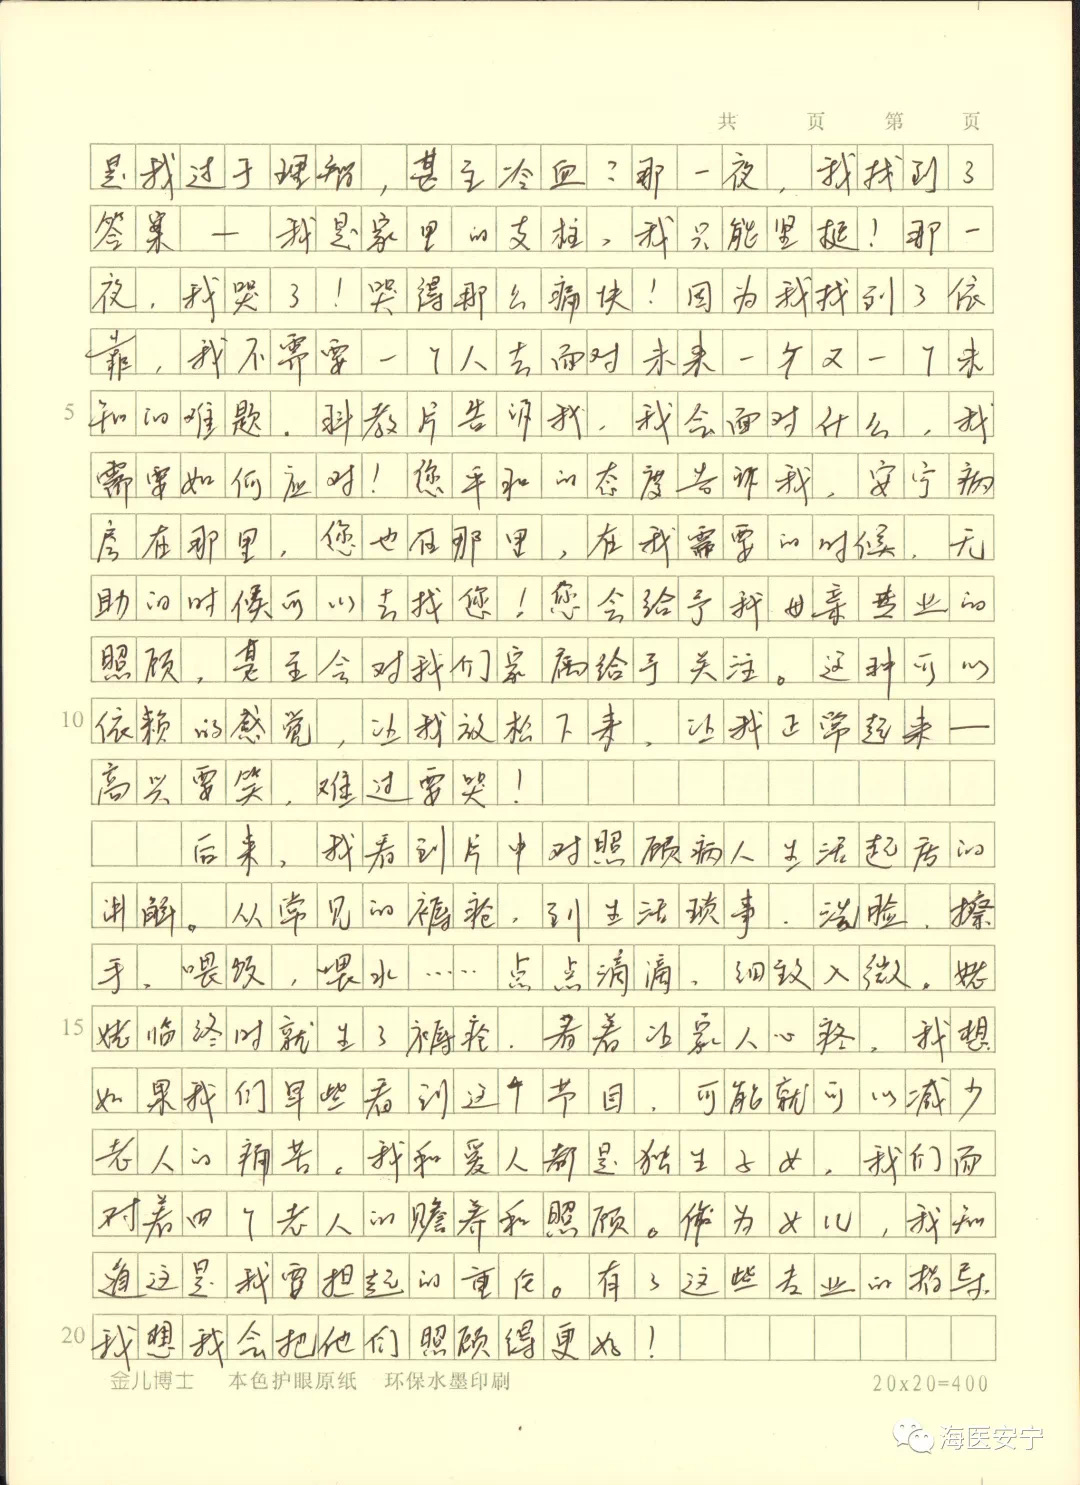 共 页 第 页
是我过于理智，甚至冷血？那一夜，我找到了
答案—我是家里的支柱，我只能坚挺！那一
夜，我哭了！哭得那么痛快！因为我找到了依
靠，我不需要一个人去面对未来一个又一个未
5 知的难题。科教片告诉我，我会面对什么，我
需要如何应对！您平和的态度告诉我，安宁病
房在那里，您也在那里，在我需要的时候，无
助的时候可以去找您！您会给予我母亲专业的
照顾，甚至会对我们家属给予关注。这种可以
10 依赖的感觉，让我放松下来，让我正常起来—
高兴要笑，难过要哭！
后来，我看到片中对照顾病人生活起居的
讲解。从常见的褥疮，到生活琐事，洗脸，擦
手，喂饭，喂水……点点滴滴，细致入微。姥
15 姥临终时就生了褥疮，看着让家人心疼，我想
如果我们早些看到这个节目，可能就可以减少
老人的痛苦。我和爱人都是独生子女，我们面
对着四个老人的赡养和照顾。做为女儿，我知
道这是我要担起的重任。有了这些专业的指导，
20 我想我会把他们照顾得更好！
金儿博士 本色护眼原纸 环保水墨印刷 20x20=400
海医安宁